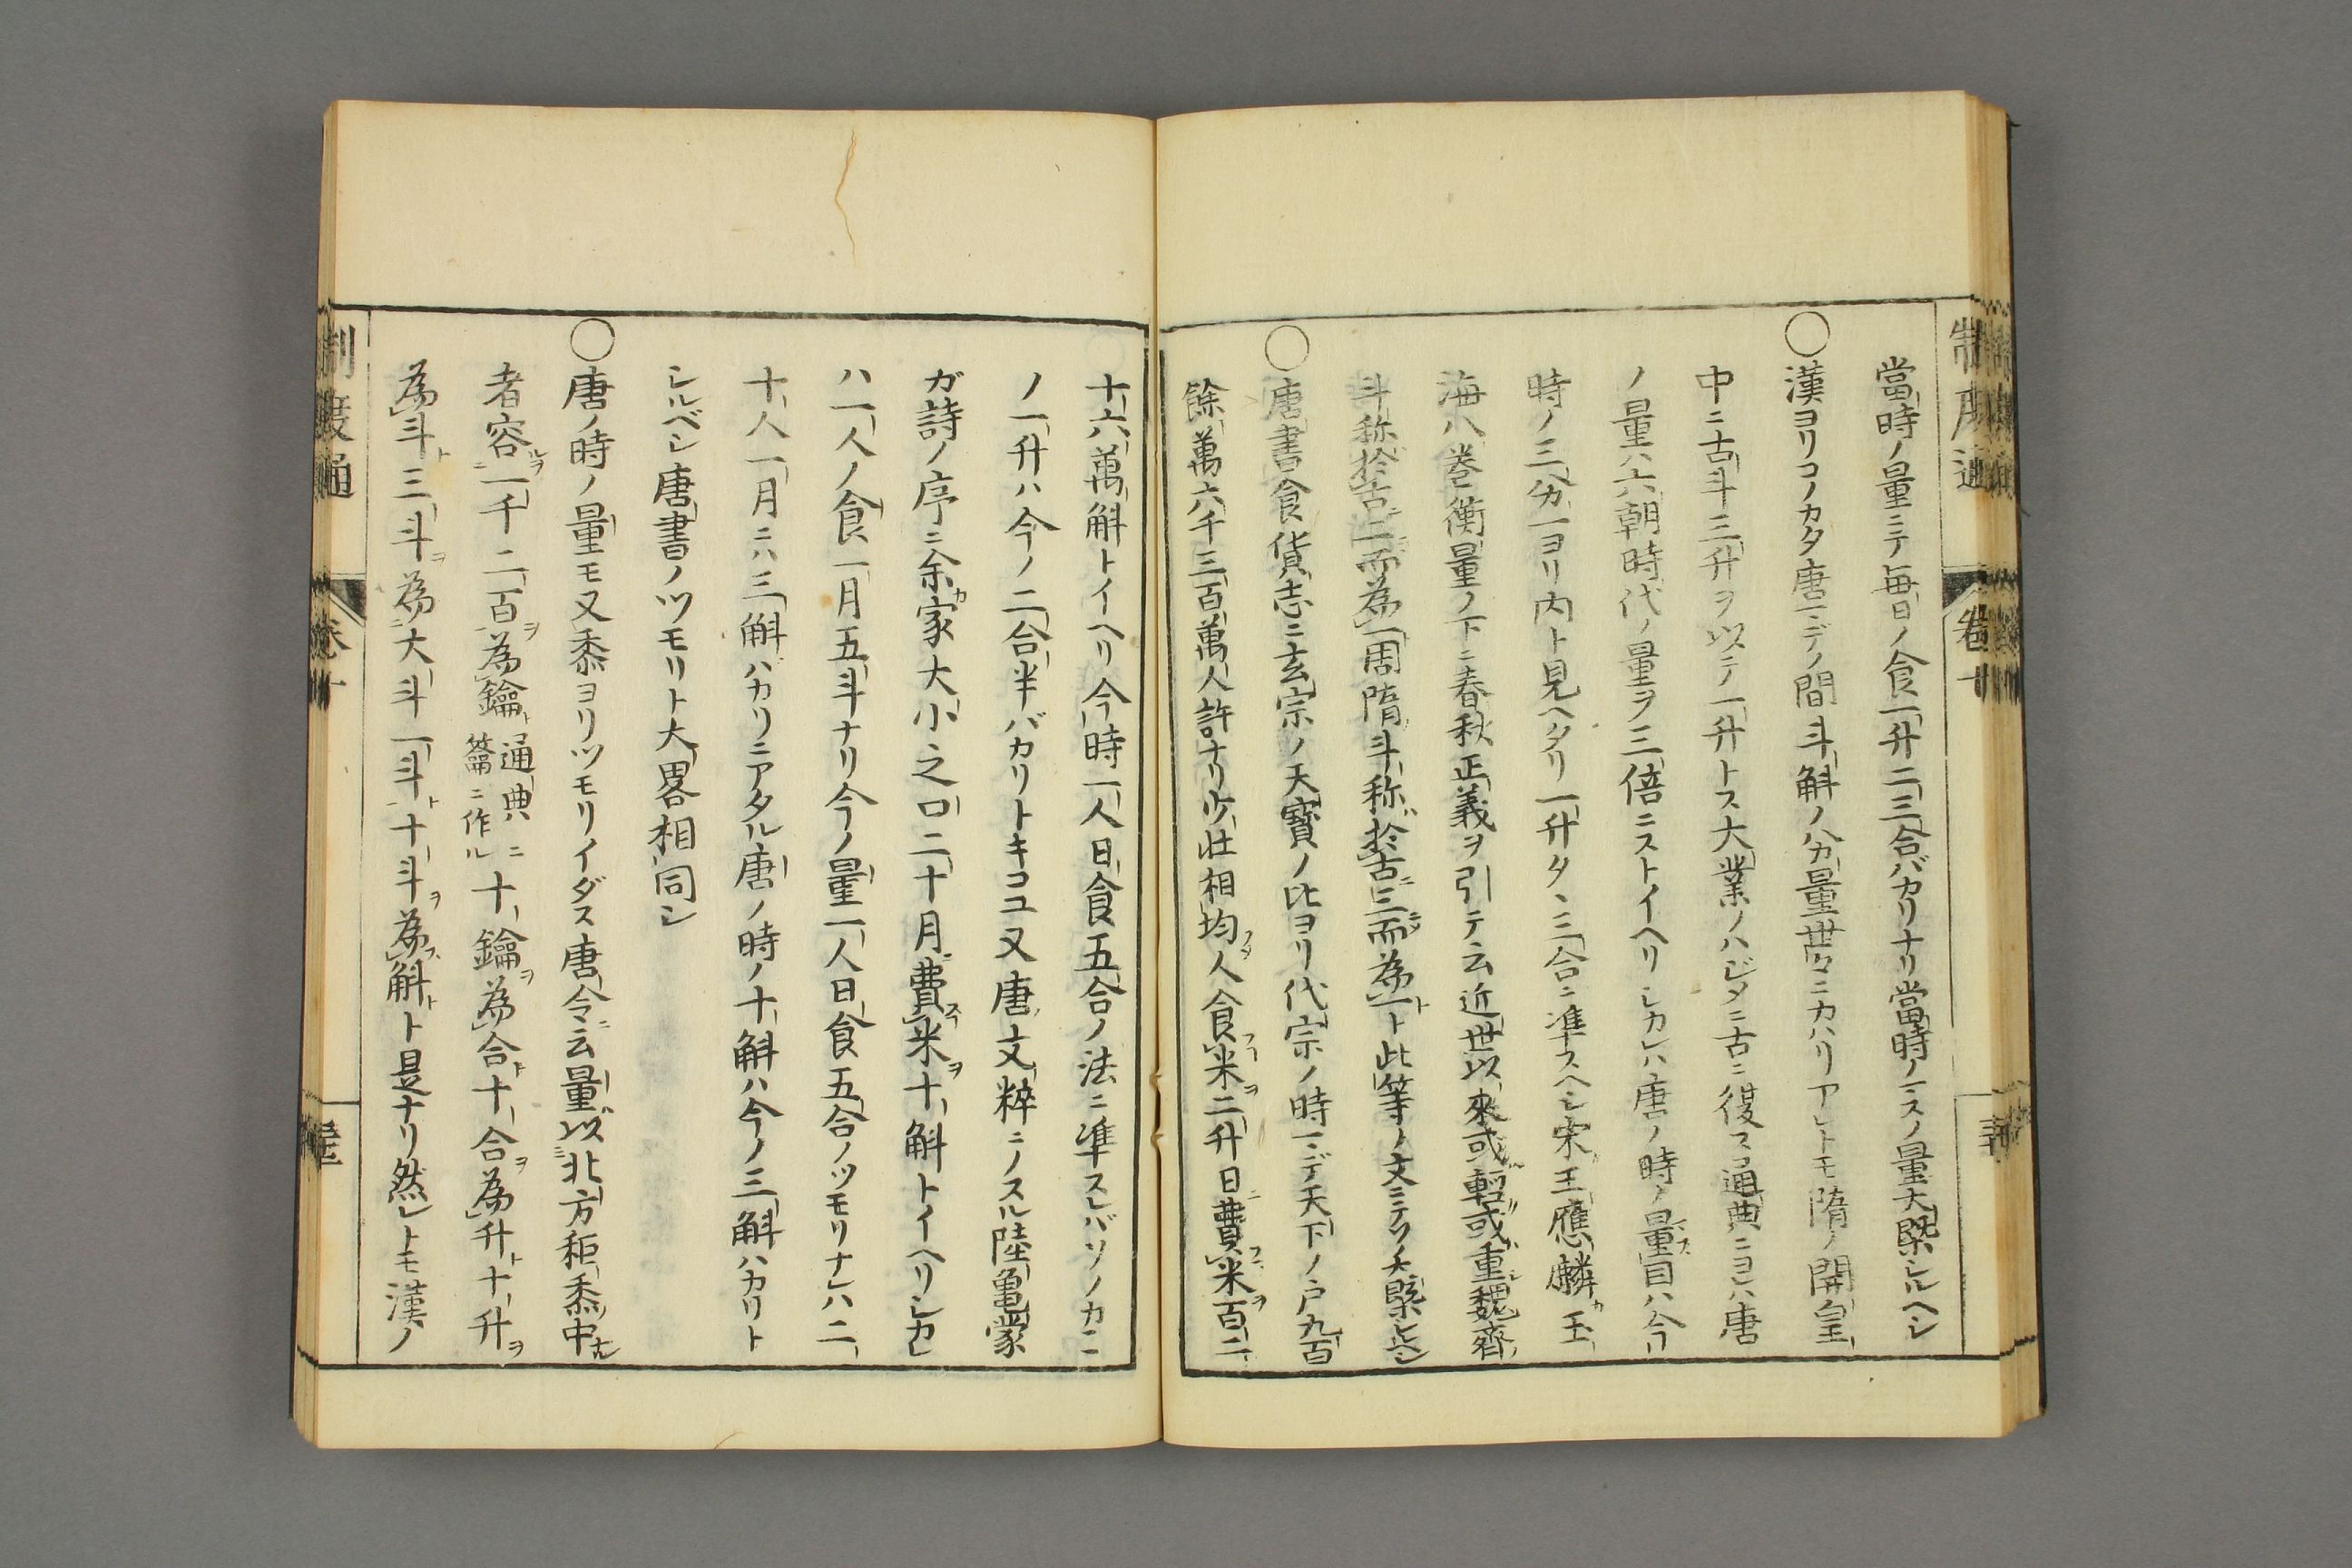 制度通
卷十
當時ノ量ニテ毎日ノ食一升二三合バカリナリ當時ノマスノ量大槩シルヘシ
○漢ヨリコノカタ唐マデノ間斗斛ノ分量世々ニカハリアレトモ隋ノ開皇
中ニ古斗三升ヲ以テ一升トス大業ノハジメニ古ニ復スコ通典ニヨレハ唐
ノ量ハ六朝時代ノ量ヲ三倍ニストイヘリシカレハ唐ノ時ノ量目ハ今ノ
時ノ三分一ヨリ内ト見ヘタリ一升タヽ三合ニ準スヘシ宋王應麟カ玉
海八卷衡量ノ下ニ春秋正義ヲ引テ云近世以來或輕或重魏齊
斗称於古二而為一周隋斗称於古三而為一ト此等ノ文ニテソノ大槩シルヘシ
○唐書食貨志ニ玄宗ノ天寶ノ比ヨリ代宗ノ時マデ天下ノ戸九百
餘萬六千三百萬人許ナリ少壮相均人食米二升日費米百二
十六萬斛トイヘリ今時一人日食五合ノ法ニ準スレバソノカミ
ノ一升ハ今ノ二合半バカリトキコユ又唐文粹ニノスル陸龜蒙
ガ詩ノ序ニ余家大小之口二十月費米十斛トイヘリシカレ
ハ一人ノ食一月五斗ナリ今ノ量一人日食五合ノツモリナレハ二
十人一月ニハ三斛バカリニアタル唐ノ時ノ十斛ハ今ノ三斛ハカリト
シルベシ唐書ノツモリト大畧相同シ
○唐ノ時ノ量モ又黍ヨリツモリイダス唐令ニ云量以北方秬黍中ナル
者容ルヲ一千二百為鑰通典ニ龠ニ作ル十鑰ヲ為合ト十合ヲ為升ト十升ヲ
為斗ト三斗ヲ為大斗一斗ト十斗ヲ為斛ト是ナリ然レトモ漢ノ
制度通
卷十